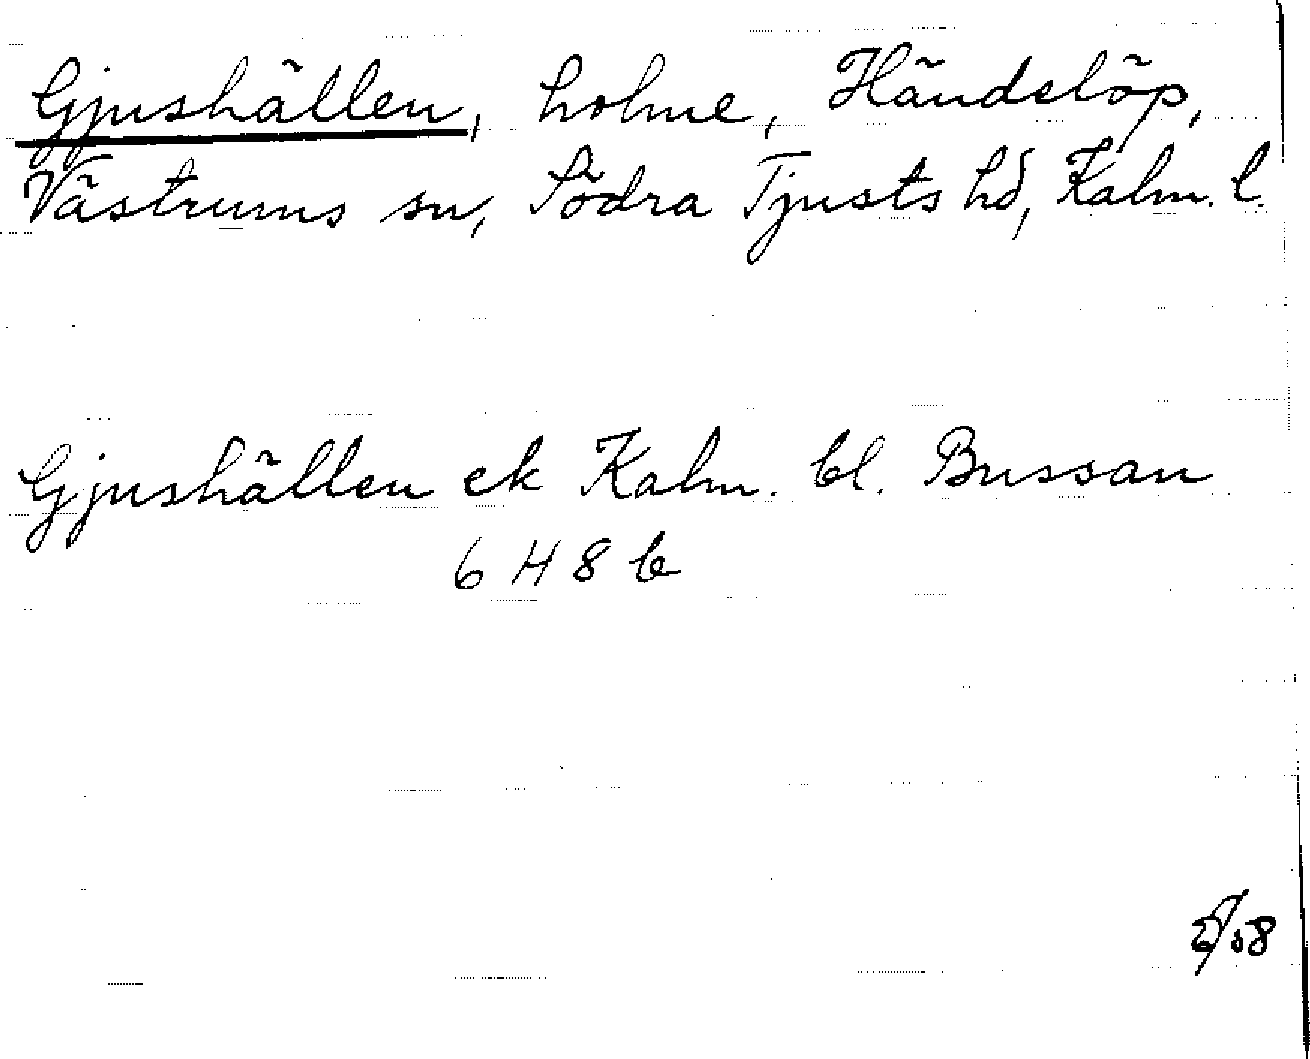 Gjushällen, holme, Händelöp,
Västrums sn, Södra Tjusts hd, Kalm. l.
Gjushällen ek Kalm. bl. Bussan
6 H 8 b